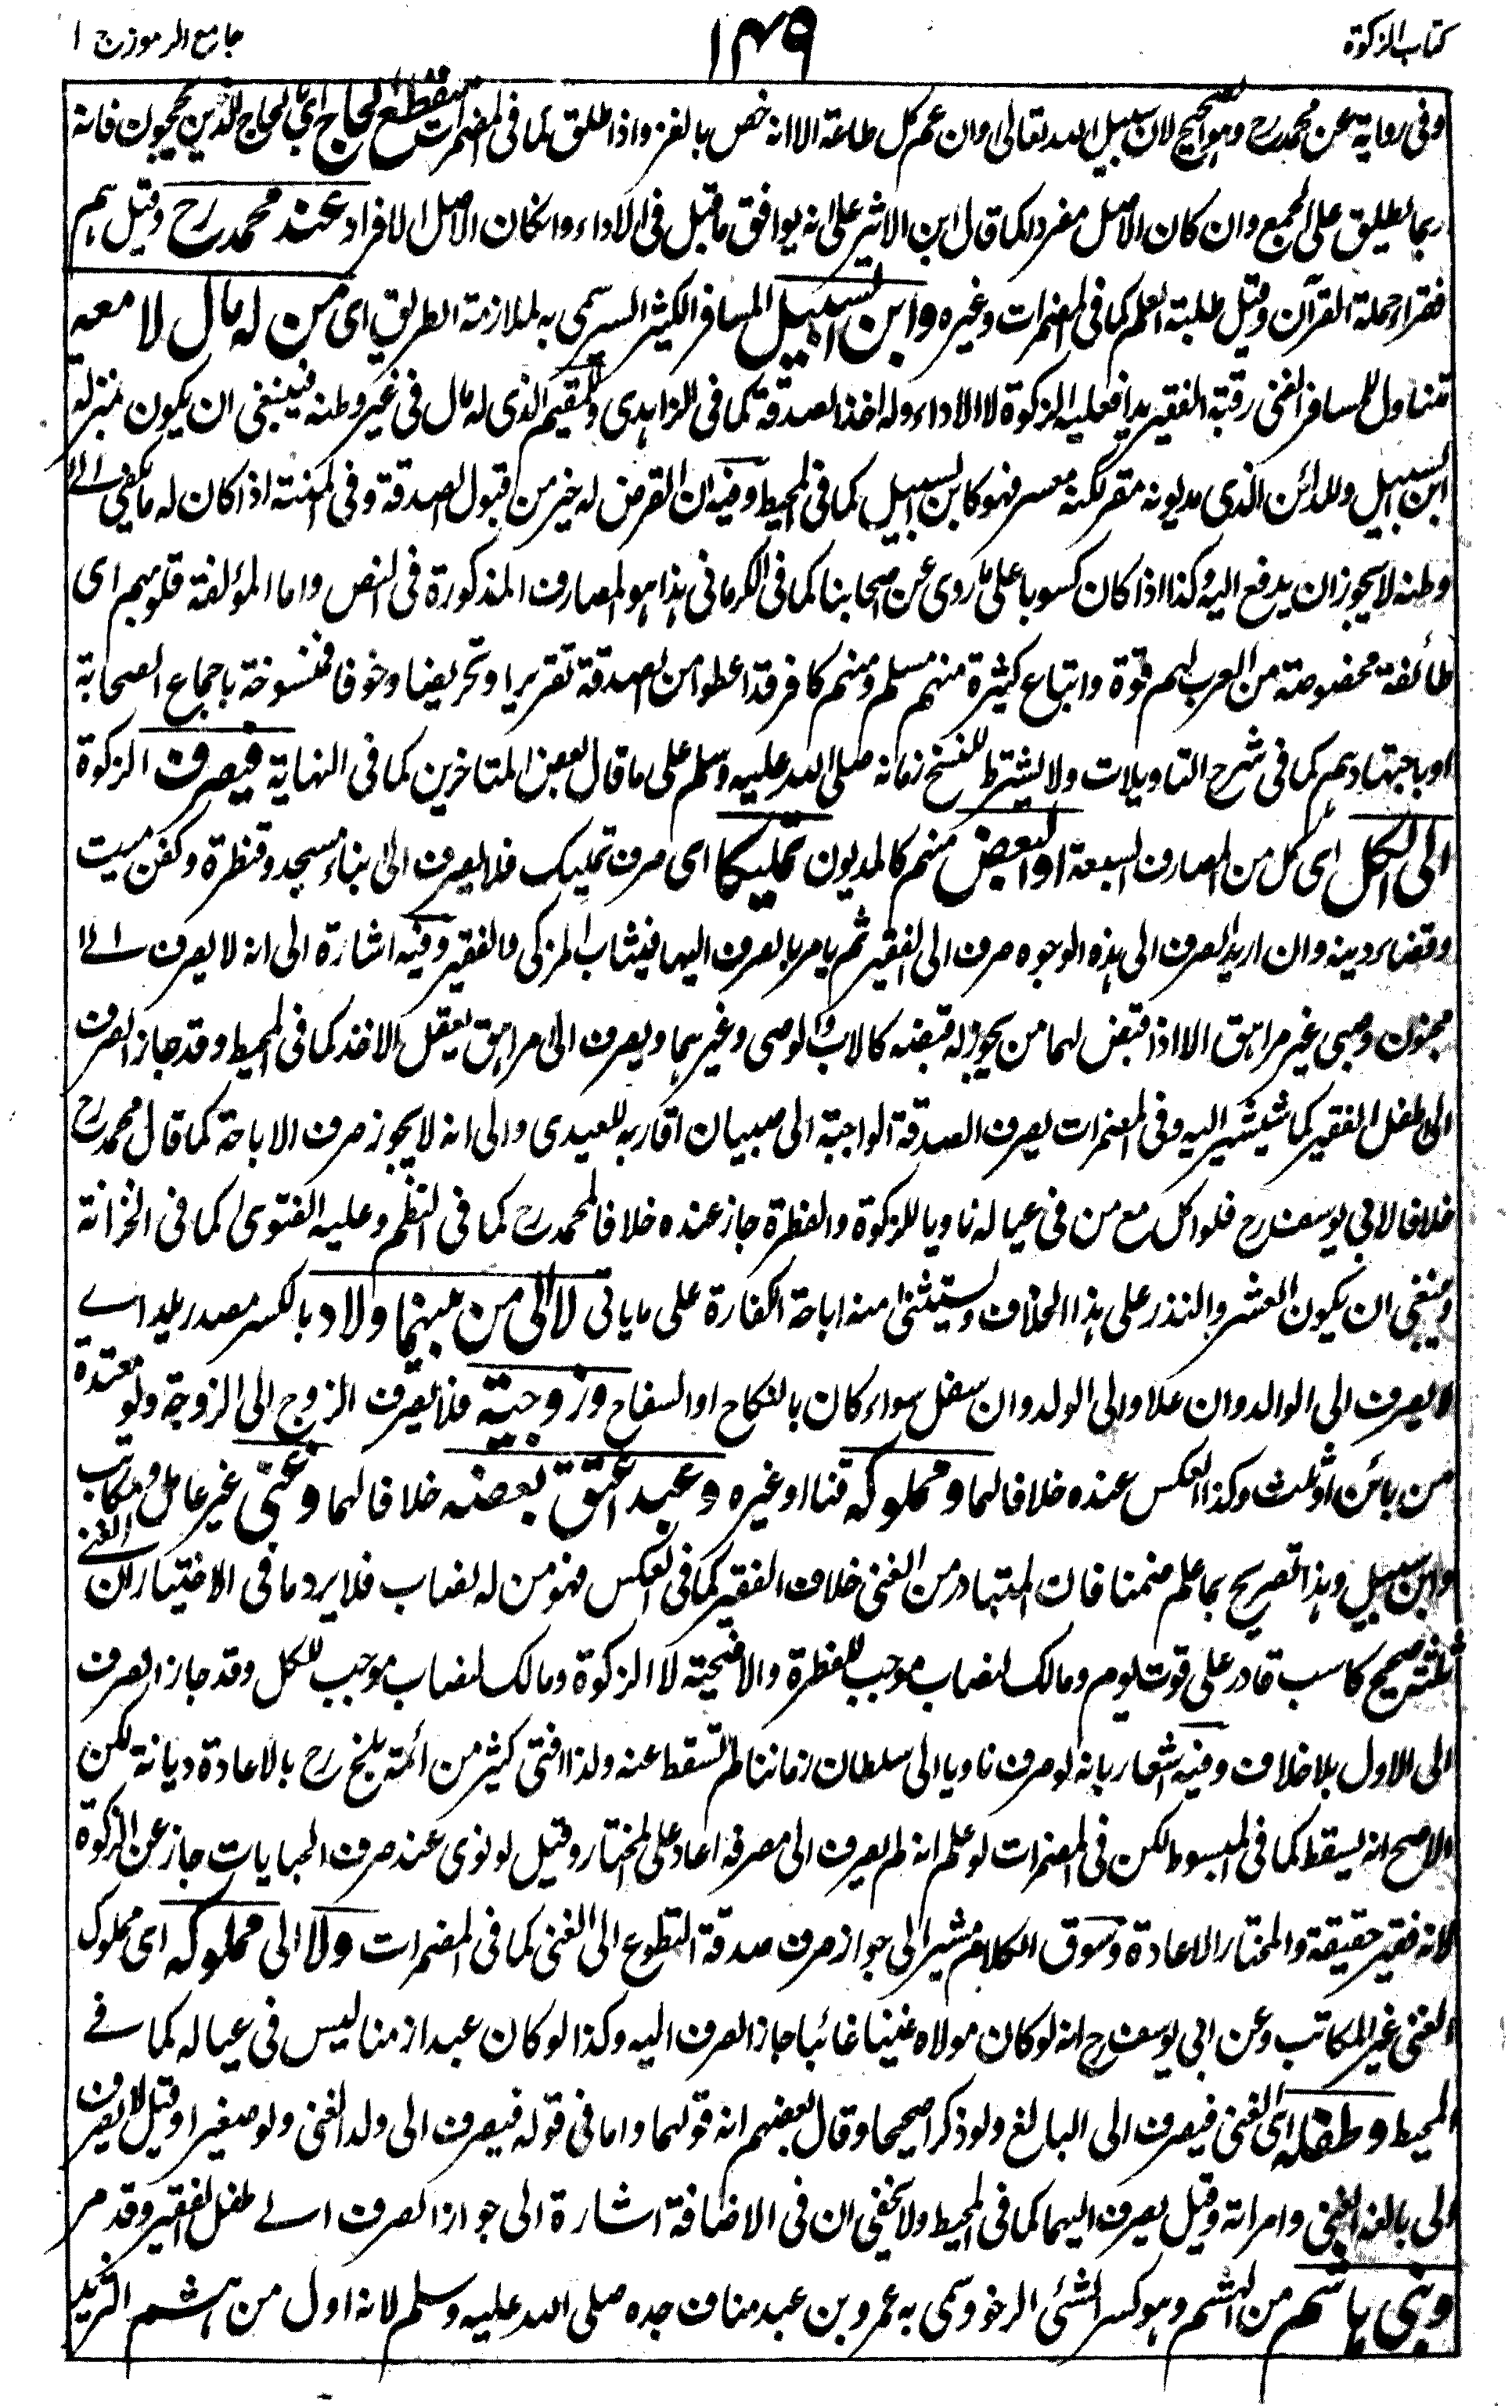 كتاب الزكوة
١٤٩
جامع الرموز ج ١
وفى رواية عن محمد رح وهو الصحيح لان سبيل الله تعالى وان عم كل طاعة الا انه خص بالغزو اذا اطلق كما فى المضمرات منقطع الحاج اى الحاج الذين يحجون فانه
ربما يطلق على الجمع وان كان الاصل مفردا كما قال ابن الاثير على انه يوافق ما قبل فى الاداء وانكان الاصل الافراد عند محمد رح وقيل هم
فقراء حملة القرآن وقيل طلبة العلم كما فى المضمرات وغيره وابن السبيل المسافر الكثير السير سمى به لملازمة الطريق اى من له مال لا معه
تتناول المسافر الغنى رقبة الفقير يدا فعليه الزكوة لا الاداء وله اخذ الصدقة كما فى الزاهدى والمقيم الذى له مال فى غير وطنه فينبغى ان يكون بمنزلة
ابن السبيل وللدائن الذى مديونه مقر لكنه معسر فهو كابن السبيل كما فى المحيط وفيه ان القرض له خير من قبول الصدقة وفى المنية اذا كان له ما يكفى الى
وطنه لا يجوز ان يدفع اليه وكذا اذا كان كسوبا على ما روى عن اصحابنا كما فى الكرمانى هذا هو المصارف المذكورة فى النص واما المؤلفة قلوبهم اى
طائفة مخصوصة من العرب لهم قوة واتباع كثيرة منهم مسلم ومنهم كافر قد اعطوا من الصدقة تقريرا وتحريضا وخوفا فمنسوخة باجماع الصحابة
او باجتهادهم كما فى شرح التاويلات ولا يشترط للنسخ زمانه صلى الله عليه وسلم على ما قال بعض المتاخرين كما فى النهاية فيصرف الزكوة
الى الكل اى كل من المصارف السبعة او البعض منهم كالمديون تمليكا اى صرف تمليك فلا يصرف الى بناء مسجد وقنطرة وكفن ميت
وقضاء دينه وان اريد الصرف الى هذه الوجوه صرف الى الفقير ثم يامر بالصرف اليها فيثاب المزكى والفقير وفيه اشارة الى انه لا يصرف الى
مجنون وصبى غير مراهق الا اذا قبض لهما من يجوز له قبضه كالاب والوصى وغيرهما ويصرف الى مراهق يعقل الاخذ كما فى المحيط وقد جاز الصرف
الى طفل الفقير كما سيشير اليه وفى المضمرات يصرف الصدقة الواجبة الى صبيان اقاربه للعيدى والى انه لا يجوز صرف الاباحة كما قال محمد رح
خلافا لابى يوسف رح فلو اكل مع من فى عياله ناويا للزكوة والفطرة جاز عنده خلافا لمحمد رح كما فى النظم وعليه الفتوى كما فى الخزانة
وينبغى ان يكون العشر والنذر على هذا الخلاف ويستثنى منه اباحة الكفارة على ما ياتى لا الى من بينهما ولاد بالكسر مصدر يلد اى
لا يصرف الى الوالد وان علا والى الولد وان سفل سواء كان بالنكاح او السفاح وزوجية فلا يصرف الزوج الى الزوجة ولو معتدة
من بائن او ثلث وكذا العكس عنده خلافا لهما ومملوكه قنا او غيره وعبد اعتق بعضه خلافا لهما وغنى غير عامل ومكاتب
وابن سبيل وهذا تصريح بما علم ضمنا فان المتبادر من الغنى خلاف الفقير كما فى العكس فهو من له نصاب فلا يرد ما فى الاختيار ان الغنى
ثلثة صحيح كاسب قادر على قوت يوم ومالك نصاب موجب للفطرة والاضحية لا الزكوة ومالك نصاب موجب للكل وقد جاز الصرف
الى الاول بلا خلاف وفيه اشعار بانه لو صرف ناويا الى سلطان زماننا لم تسقط عنه ولذا افتى كثير من ائمة بلخ رح بالاعادة ديانة لكن
الاصح انه يسقط كما فى المبسوط لكن فى المضمرات لو علم انه لم يصرف الى مصرفه اعاد على المختار وقيل لو نوى عند صرف الجبايات جاز عن الزكوة
لانه فقير حقيقة والمختار الاعادة وسوق الكلام مشير الى جواز صرف صدقة التطوع الى الغنى كما فى المضمرات ولا الى مملوكه اى مملوك
الغنى غير المكاتب وعن ابى يوسف رح انه لو كان مولاه غنيا غائبا جاز الصرف اليه وكذا لو كان عبدا زمنا ليس فى عياله كما فى
المحيط وطفله اى الغنى فيصرف الى البالغ ولو ذكرا صحيحا وقال بعضهم انه قولهما واما فى قوله فيصرف الى ولد الغنى ولو صغيرا وقيل لا يصرف
الى بالغه الغنى وامراته وقيل يصرف اليهما كما فى المحيط ولا يخفى ان فى الاضافة اشارة الى جواز الصرف الى طفل الفقير وقد مر
وبنى هاشم من الهشم وهو كسر الشئ الرخو وسمى به عمرو بن عبد مناف جده صلى الله عليه وسلم لانه اول من هشم الثريد